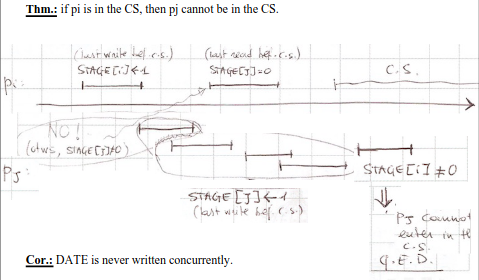 Thm.: if pi is in the CS, then pj cannot be in the CS.
(last write bef. c.s.) (last read bef. c.s.)
STAGE[i]←1 STAGE[J]=0 C.S.
Pi:
NO!
(otws, STAGE[J]≠0)
PJ: STAGE[i]≠0
STAGE[J]←1
(last write bef. c.s.)
⇓
PJ cannot
enter in the
c.s.
Q.E.D.
Cor.: DATE is never written concurrently.